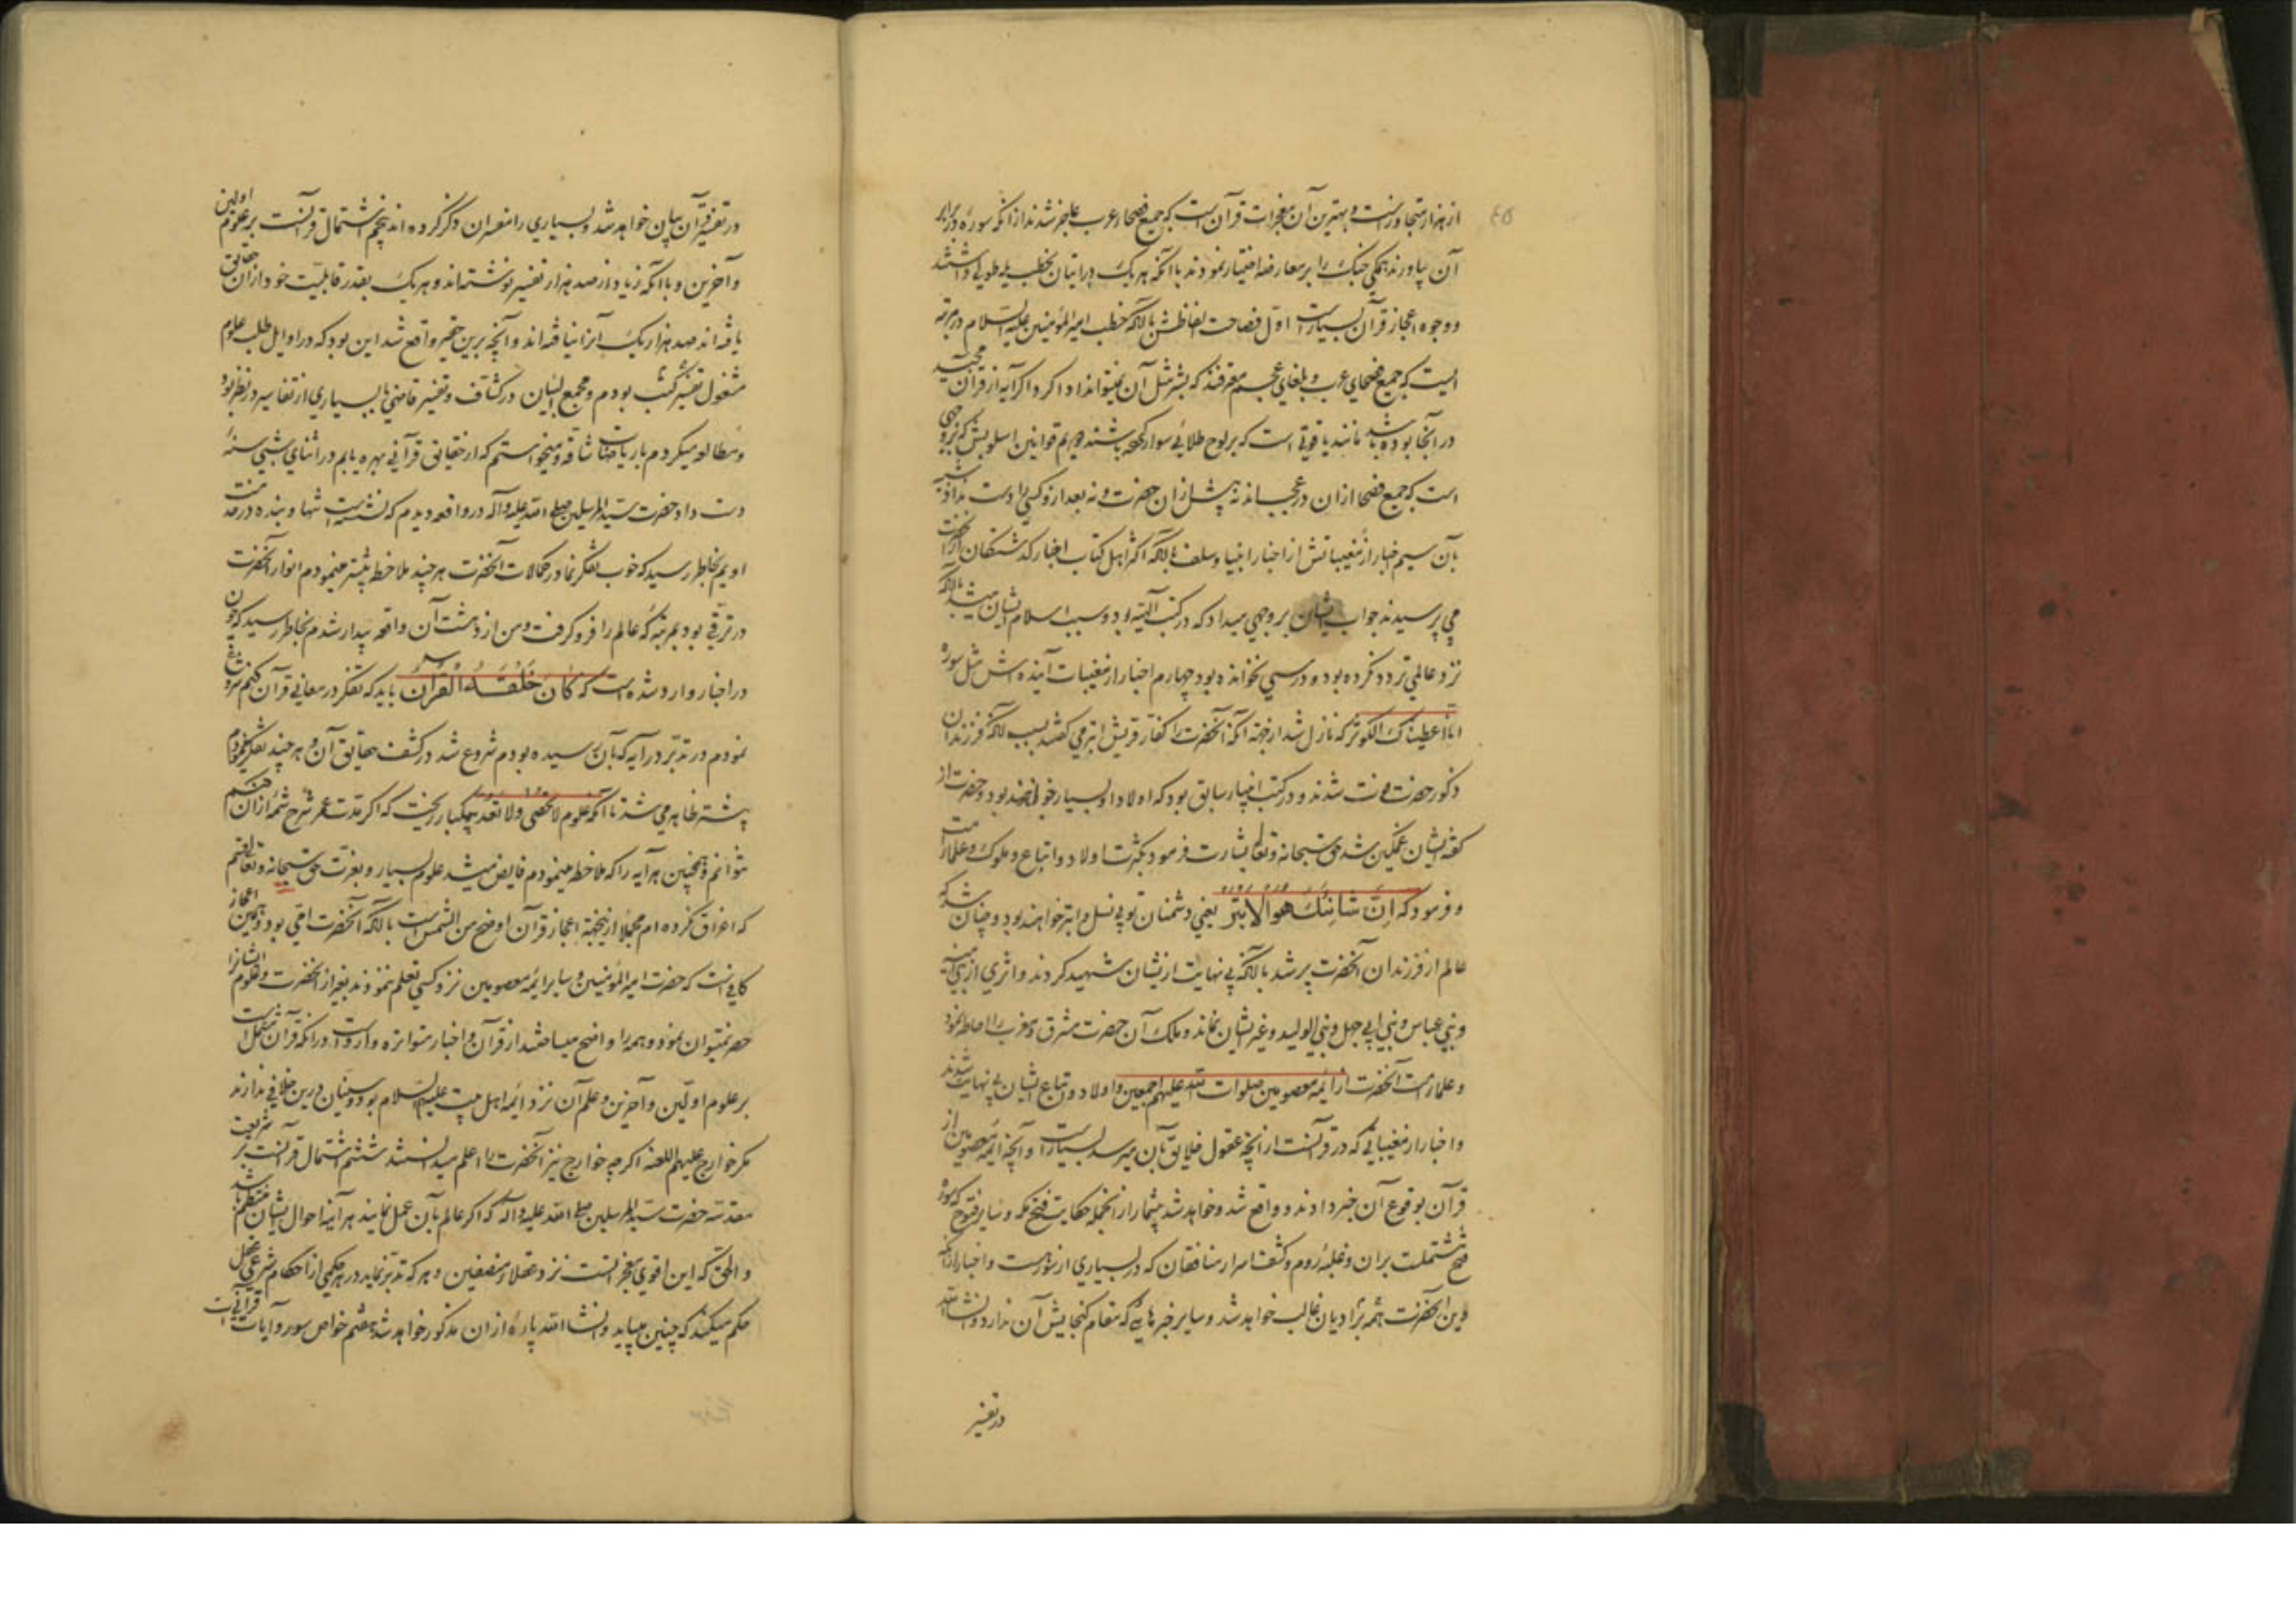 از هزار متجاوزست و بهترین آن معجزات قرآن است که جمیع فصحاء عرب عاجز شدند از انکه سوره در برابر
آن بیاورند همکی جنک را بر معارضه اختیار نمودند با انکه هر یک در اتیان بخطب ید طولی داشتند
و وجوه اعجاز قرآن بسیارست اول فصاحت الفاظش با انکه خطب امیر المؤمنین علیه السلام در مرتبه
ایست که جمیع فصحای عرب و بلغای عجم معترفند که بشر مثل آن نمیتواند ادا کرد اکر آیه از قرآن مجید
در انجا بوده باشد مانند یاقوتی است که بر لوح طلائی سوار کرده باشند دویم قوانین اسلوبش که بر وجهی
است که جمیع فصحا ازان در عجب اند نه پیش ازان حضرت و نه بعد ازو کسی را دست نداد
بآن سیم اخبار از مغیباتش از اخبار انبیا و سلف با انکه اکثر اهل کتاب اخبار کذشتکان از آنحضرت
می پرسیدند جواب ایشان بر وجهی میداد که در کتب الهیه بود و سبب اسلام ایشان میشد با انکه
نزد عالمی تردد نکرده بود و درسی نخوانده بود چهارم اخبار از مغیبات آینده اش مثل سوره
انا اعطیناک الکوثر که نازل شد از جهة آنکه آنحضرت را کفار قریش ابتر می کفتند بسبب انکه فرزندان
ذکور حضرت فوت شدند و در کتب انبیاء سابق بود که اولاد او بسیار خواهند بود و حضرت از
کفته ایشان غمکین شد حق سبحانه و تعالی بشارت فرمود بکثرت اولاد و اتباع و ملوک و علماء امت
و فرمود که اِنَّ شانِئَکَ هُوَ الاَبتَر یعنی دشمنان تو بی نسل و ابتر خواهند بود و چنان شد که
عالم از فرزندان آنحضرت پر شد با انکه بی نهایت از یشان شهید کردند و اثری از بنی امیه
و بنی عباس و بنی ابی جهل و بنی الولید و غیر ایشان نماند و ملک آن حضرت مشرق و مغرب را احاطه نمود
و علماء امت آنحضرت از ائمه معصومین صلوات الله علیهم اجمعین و اولاد و اتباع ایشان بی نهایت شدند
و اخبار از مغیباتی که در قرآنست از انچه عقول خلایق بآن میرسد بسیارست و آنچه ائمه معصومین از
قرآن بوقوع آن خبر دادند و واقع شد و خواهد شد بیشمار از انجمله حکایت فتح مکه و سایر فتوح که سوره
فتح مشتملست بران و غلبه روم و کشف اسرار منافقان که در بسیاری از سورست و اخبار از انکه
دین آنحضرت همه بر ادیان غالب خواهد شد و سایر خبرهایی که مقام کنجایش آن ندارد و انشاء الله
در تفسیر
در تفسیر قرآن بیان خواهد شد و بسیاری را مفسران ذکر کرده اند پنجم اشتمال قرآنست بر علوم اولین
و آخرین و با انکه زیاده از صد هزار تفسیر نوشته اند و هر یک بقدر قابلیت خود ازان حقایق
یافته اند صد هزار یک آنرا نیافته اند و آنچه برین حقیر واقع شد این بود که در اوایل طلب علوم
مشغول تفسیر کشف بودم و مجمع البیان و کشاف و تفسیر قاضی با بسیاری از تفاسیر در نظر بود
و مطالعه میکردم با ریاضات شاقه و میخواستم که از حقایق قرآنی بهره یابم در اثنای شبی سنهٔ
دست داد حضرت سید المرسلین صلی الله علیه و آله در واقعه دیدم که نشسته است تنها و بنده در خدمت
اویم بخاطر رسید که خوب تفکر نما در کمالات آنحضرت هر چند ملاحظه بیشتر مینمودم انوار آنحضرت
در ترقی بود بمرتبهٔ که عالم را فرو کرفت و من از دهشت آن واقعه بیدار شدم بخاطر رسید که چون
در اخبار وارد شده است که کانَ خُلقُهُ القُرآن باید که تفکر در معانی قرآن کنم شروع
نمودم در تدبر در آیه که بآن رسیده بودم شروع شد در کشف حقایق آن و هر چند تفکر مینمودم
بیشتر ظاهر می شد تا انکه علوم لا تحصی و لا تعد بیکبار ریخت که اکر مدت عمر شرح شمهٔ ازان کنم
نتوانم و همچنین هر آیه را که ملاحظه مینمودم فایض میشد علوم بسیار و بعزت حق سبحانه و تعالی قسم
که اغراق نکرده ام مجملا ازینجهة اعجاز قرآن اوضح من الشمس است با انکه آنحضرت امی بود و همین اعجاز
کافی است که حضرت امیر المؤمنین و سایر ائمه معصومین نزد کسی تعلم ننمودند بغیر از آنحضرت و علوم ایشانرا
حصر نمیتوان نمود و همه را واضح میساختند از قرآن و اخبار متواتره وارد است در انکه قرآن مشتمل است
بر علوم اولین و آخرین و علم آن نزد ائمه اهل بیت علیهم السلام بود و سنیان درین خلافی ندارند
مکر خوارج علیهم اللعنه اکر چه خوارج نیز آنحضرت را اعلم میدانستند ششم اشتمال قرآنست بر شریعت
مقدسه حضرت سید المرسلین صلی الله علیه و اله که اکر عالم بآن عمل نمایند هر آینه احوال ایشان منتظم باشد
و الحق که این اقوی معجزاتست نزد عقلاء منصفین و هر که تدبر نماید در هر حکمی از احکام شرعی عقل
حکم میکند که چنین میباید و انشاء الله پارهٔ ازان مذکور خواهد شد هفتم خواص سور و آیات قرآنی است